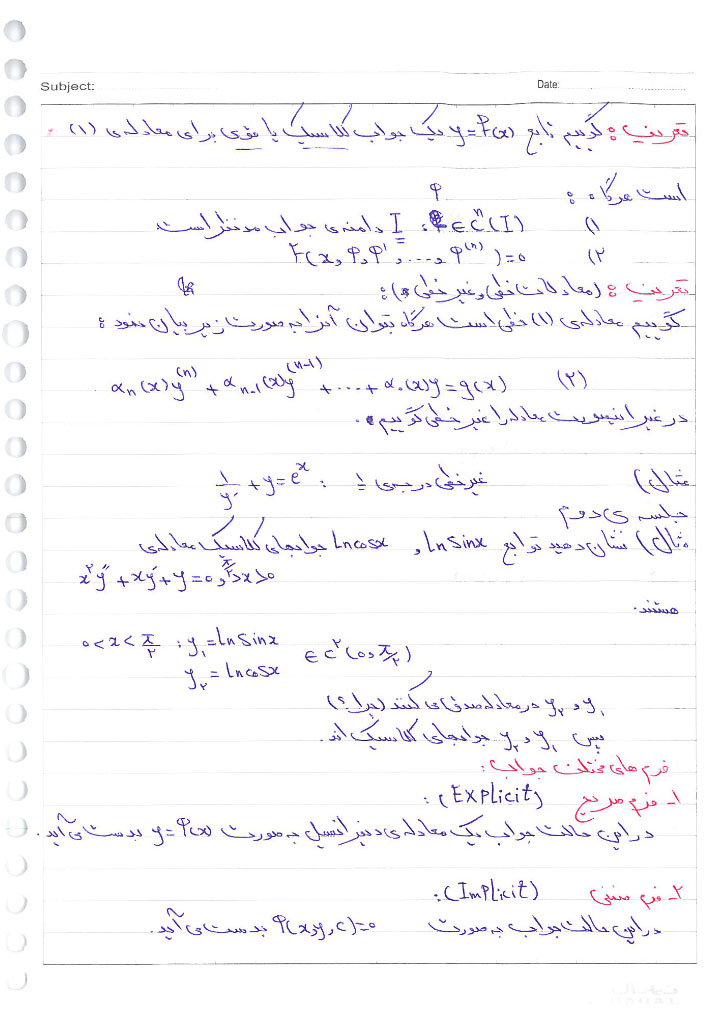 Subject:
Date:
تعریف: گوییم تابع y=φ(x) یک جواب کلاسیک یا قوی برای معادله‌ی (۱)
است هرگاه:
۱) φ∈Cⁿ(I): I دامنه‌ی جواب مدنظر است
۲) F(x, φ, φ', ..., φ⁽ⁿ⁾)=0
تعریف: (معادلات خطی و غیر خطی):
گوییم معادله‌ی (۱) خطی است هرگاه بتوان آنرا به صورت زیر بیان نمود:
(۲) αₙ(x)y⁽ⁿ⁾ + αₙ₋₁(x)y⁽ⁿ⁻¹⁾ + .... + α₀(x)y = g(x)
در غیر اینصورت معادله را غیر خطی گوییم.
مثال) غیر خطی درجه‌ی ۱ : 1/y' + y = eˣ
جلسه ی دوم
مثال) نشان دهید توابع Lnsinx و Lncosx جوابهای کلاسیک معادله‌ی
x²y'' + xy' + y = 0, π/2 > x > 0
هستند.
0 < x < π/2 : y₁ = Lnsinx
y₂ = Lncosx ∈ C²(0, π/2)
y₁ و y₂ در معادله صدق می کنند (چرا؟)
پس y₁ و y₂ جوابهای کلاسیک اند.
فرم های مختلف جواب:
۱- فرم صریح (Explicit):
در این حالت جواب یک معادله‌ی دیفرانسیل به صورت y=φ(x) بدست می آید.
۲- فرم ضمنی (Implicit):
در این حالت جواب به صورت φ(x,y,c)=0 بدست می آید.